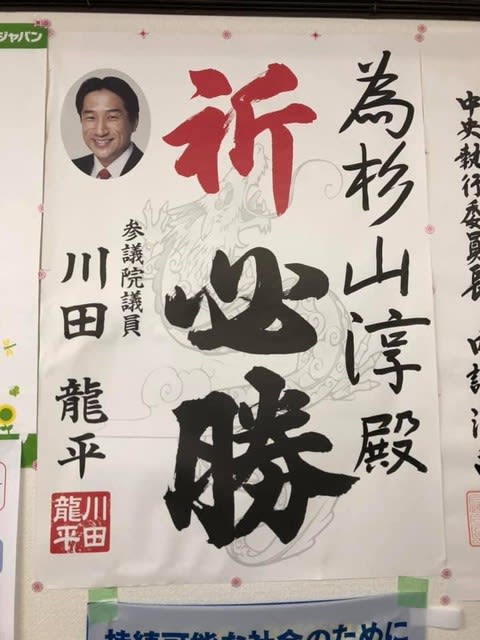 為杉山淳殿
祈必勝
参議院議員
川田 龍平
川田
龍平
ジャパン
中央執行委員長
持続可能な社会のために